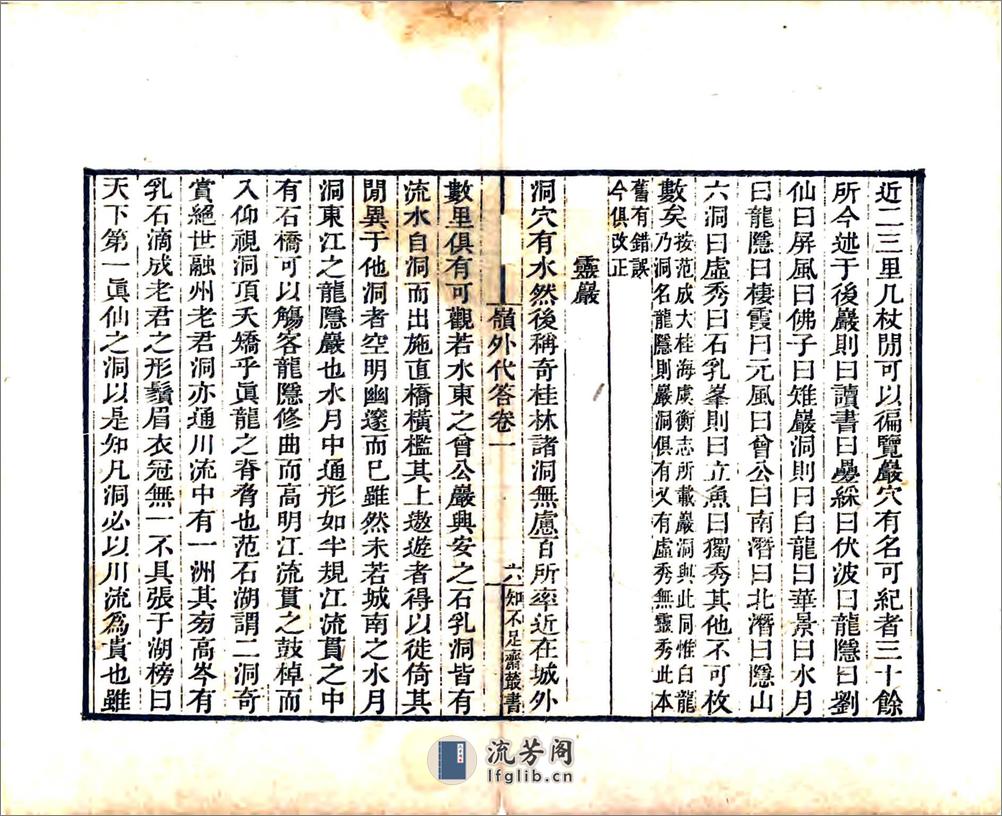 近二三里几杖閒可以徧覽巖穴有名可紀者三十餘
所今述于後巖則曰讀書曰疊綵曰伏波曰龍隱曰劉
仙曰屏風曰佛子曰雉巖洞則曰白龍曰華景曰水月
曰龍隱曰棲霞曰元風曰曾公曰南潛曰北潛曰隱山
六洞曰虛秀曰石乳峯則曰立魚曰獨秀其他不可枚
數矣按范成大桂海虞衡志所載巖洞與此同惟白龍
乃洞名龍隱則巖洞俱有又有虛秀無靈秀此本
舊有錯誤
今俱改正
靈巖
洞穴有水然後稱奇桂林諸洞無慮百所率近在城外
嶺外代答卷一
六
知不足齋叢書
數里俱有可觀若水東之曾公巖興安之石乳洞皆有
流水自洞而出施直橋橫檻其上遨遊者得以徙倚其
閒異于他洞者空明幽邃而已雖然未若城南之水月
洞東江之龍隱巖也水月中通形如半規江流貫之中
有石橋可以觴客龍隱修曲而高明江流貫之鼓棹而
入仰視洞頂夭矯乎眞龍之脊脅也范石湖謂二洞奇
賞絕世融州老君洞亦通川流中有一洲其旁高岑有
乳石滴成老君之形鬚眉衣冠無一不具張于湖榜曰
天下第一眞仙之洞以是知凡洞必以川流爲貴也雖
流芳阁
lfglib.cn